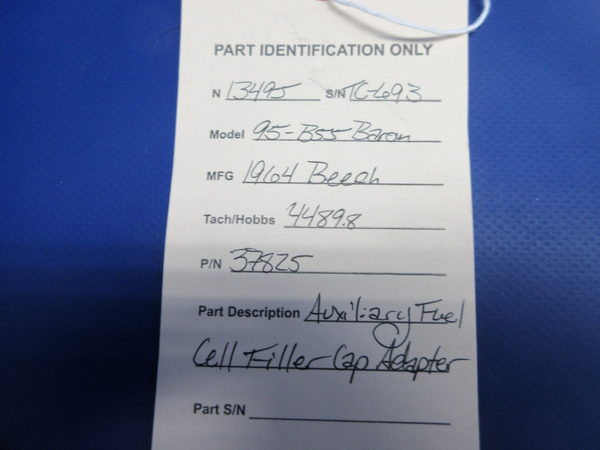 PART IDENTIFICATION ONLY
N 13495 S/N TC-693
Model 95-B55 Baron
MFG 1964 Beech
Tach/Hobbs 4489.8
P/N 37825
Part Description Auxiliary Fuel
Cell Filler Cap Adapter
Part S/N